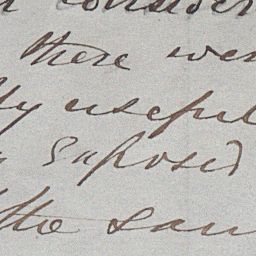 consider
there wer
ly useful
exposed
the sam